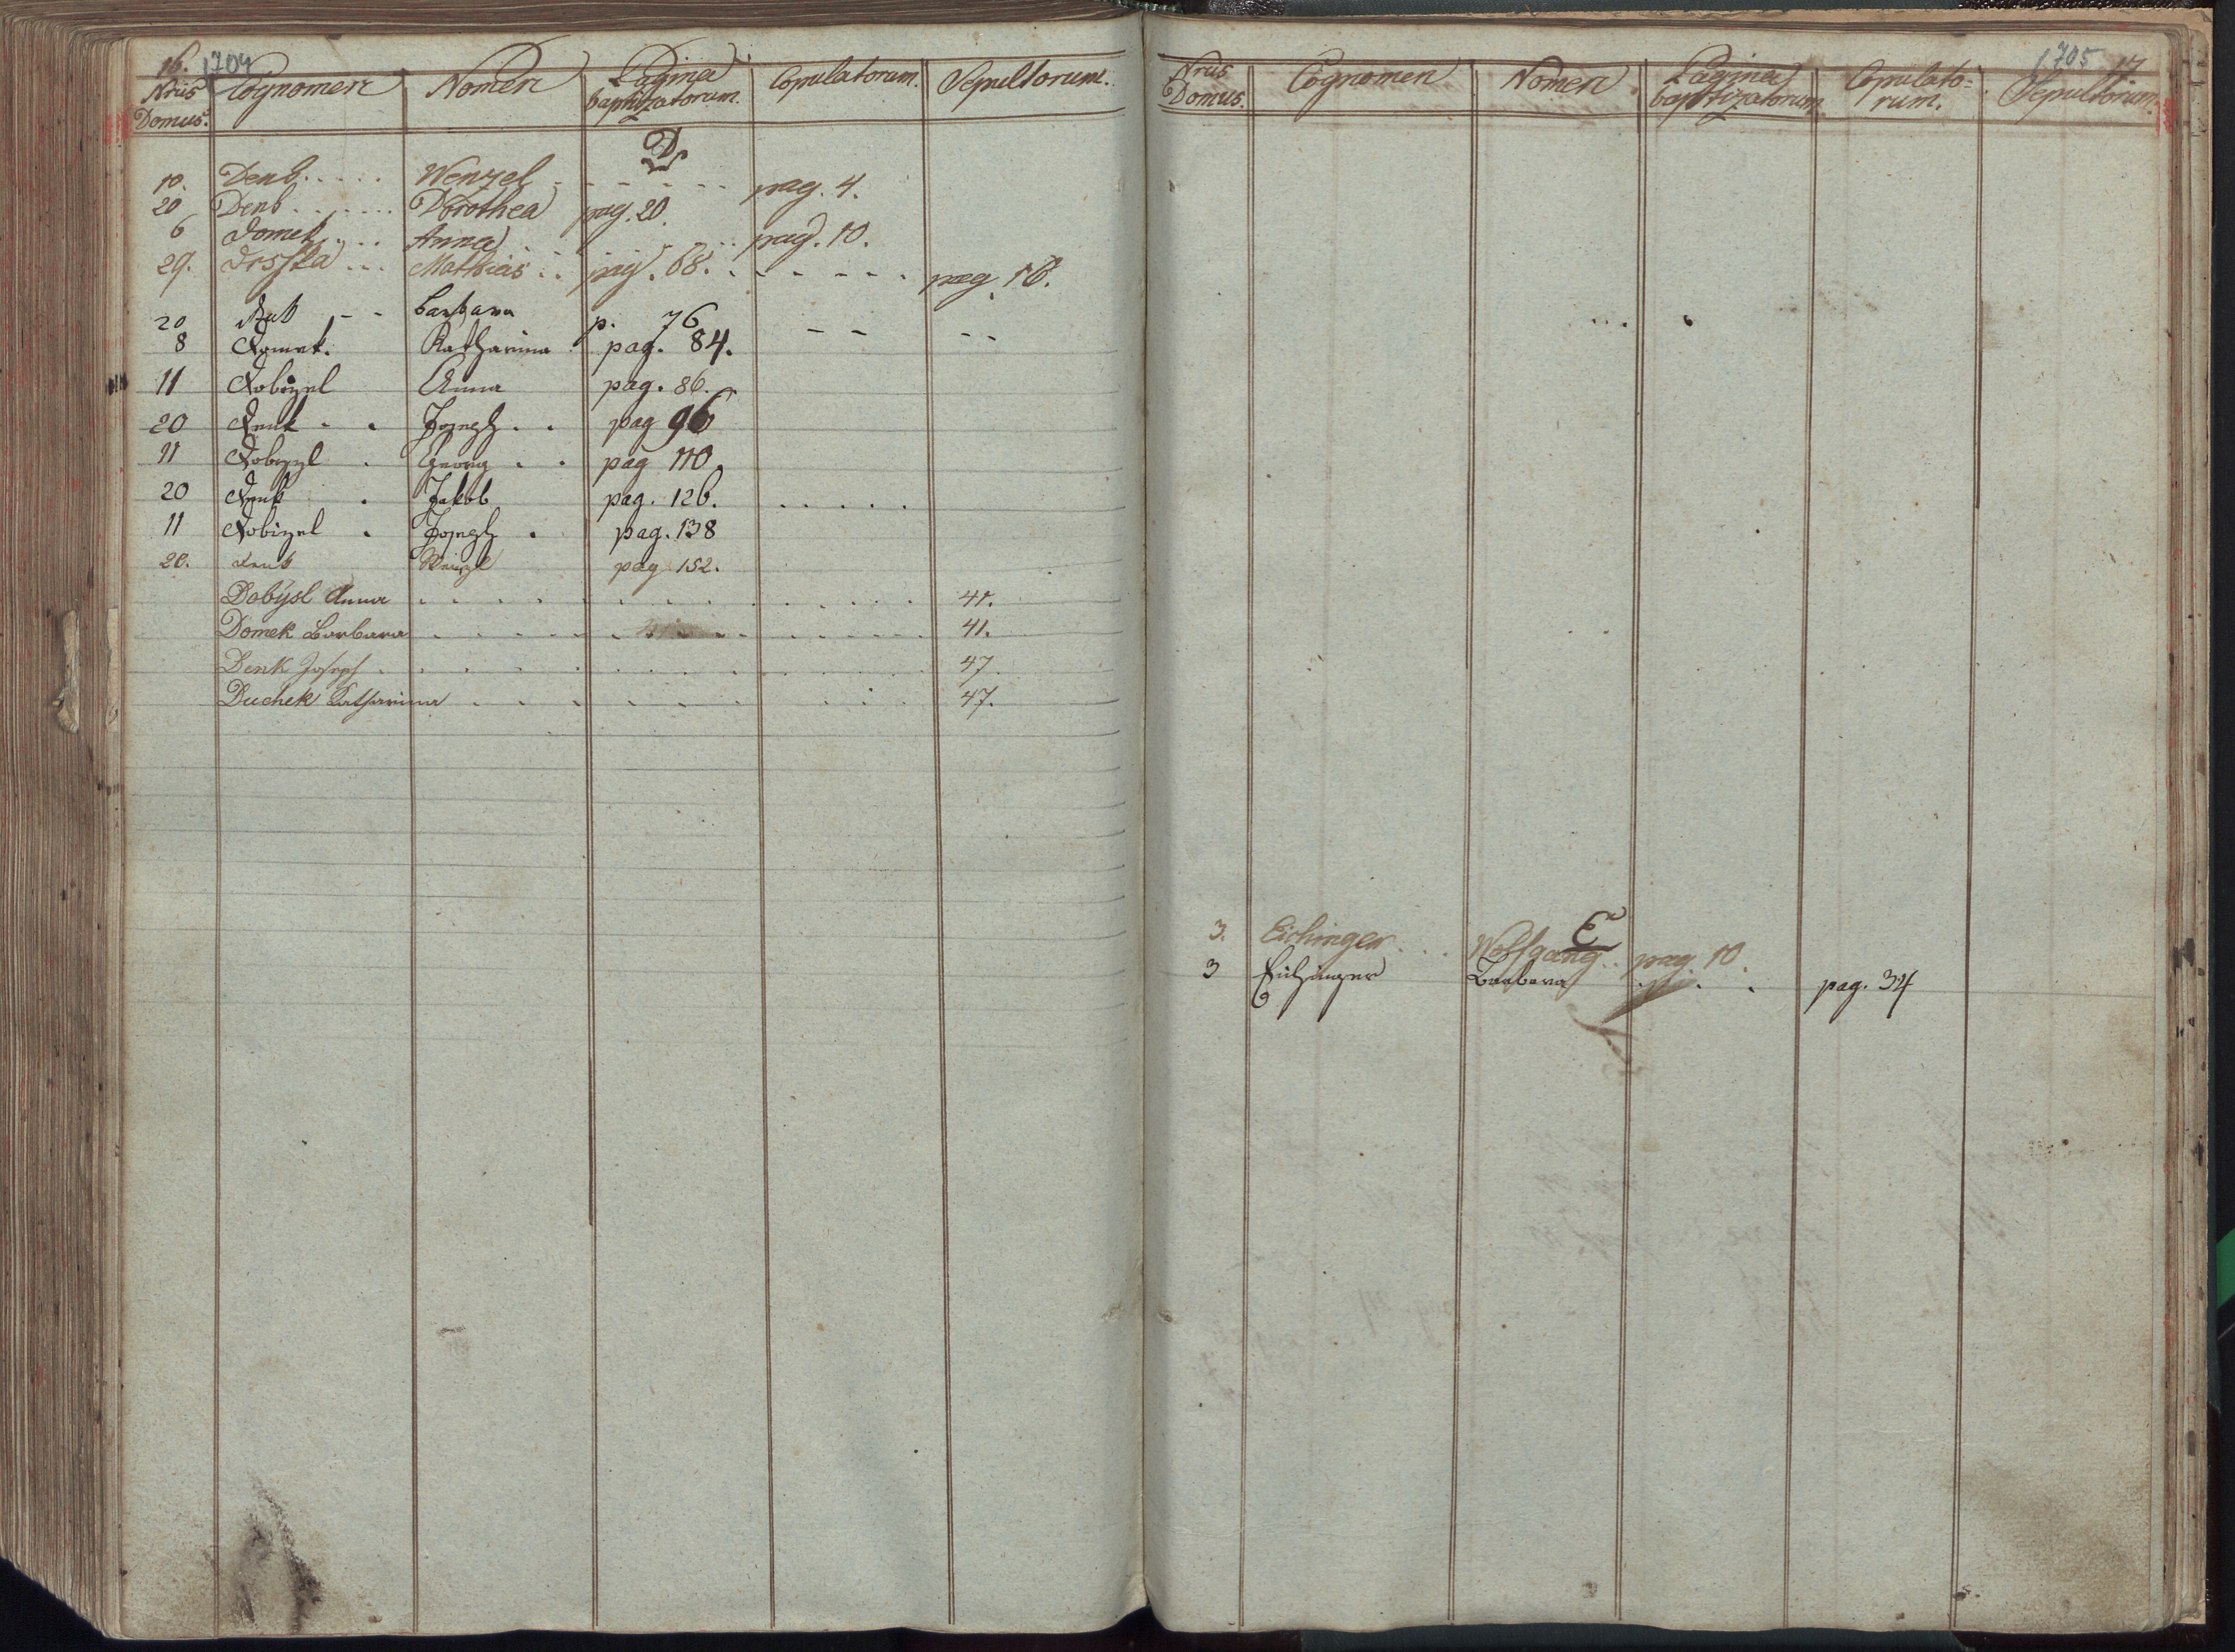 16. 1704
Nrus Domus. Cognomen Nomen Pagina baptizatorum. Copulatorum. Sepultorum.
D
10. Denk..... Wenzel - - - - - - - pag. 4.
20 Denk...... Dorothea pag. 20.
6 Domek.... Anna ... pag. 10.
29. Mathias ... pag. 68. - - - - - pag. 16.
20 - - Barbara p. 76
8 Domek. Katharina pag. 84. - - - -
11 Dobizel Anna pag. 86.
20 Denk . . Joseph . . pag 96
11 Dobizel . Georg . . pag 110.
20 Denk . Jakob pag. 126. . . . . .
11 Dobizel . Joseph . pag. 138
20. Denk Wenzl pag 152.
Dobýsl Anna . . . . . . . . . . . . . 41.
Domek Barbara . . . . . . . . . . . . 41.
Denk Joseph . . . . . . . . . . . . . 47.
Duchek Katharina . . . . . . . . . . 47.
1705 17
Nrus Domus. Cognomen Nomen Pagina baptizatorum Copulato=rum. Sepultorum.
E
3. Eichinger... Wolfgang.. pag. 10.
3 Eichinger Barbara . . . pag. 34